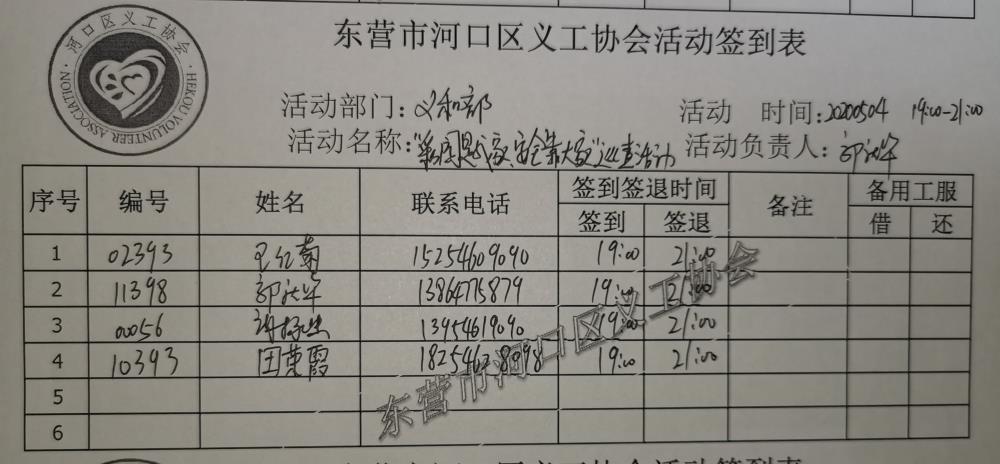 河口区义工协会
HEKOU VOLUNTEER ASSOCIATION
东营市河口区义工协会活动签到表
活动部门：义和部 活动 时间：20200504 19:00-21:00
活动名称：安全靠大家"巡查活动 活动负责人：郭
序号 编号 姓名 联系电话 签到签退时间 备注 备用工服
签到 签退 借 还
1 02393 王红菊 15254609090 19:00 21:00
2 11398 郭 13864775879 19:00 21:00
3 00056 13954619090 19:00 21:00
4 10393 田荣霞 18254628098 19:00 21:00
5
6
东营市河口区义工协会